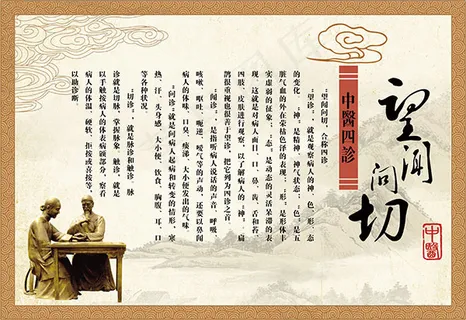 望闻问切
中醫四診
中醫
望闻问切，合称四诊
"望诊"，就是观察病人的神、色、形、态
的变化。"神"是精神、神气状态；"色"是五
脏气血的外在荣枯色泽的表现；"形"是形体丰
实虚弱的征象；"态"是动态的灵活呆滞的表
现。这就是对病人面目、口、鼻、齿、舌和苔
四肢、皮肤进行观察，以了解病人的"神"。扁
鹊很重视也很善于望诊，把它列为四诊之首
"闻诊"，是指听病人说话的声音、呼吸
咳嗽、呕吐、呃逆、嗳气等的声动，还要以鼻闻
病人的体味、口臭、痰涕、大小便发出的气味
"问诊"就是问病人起病和转变的情形，寒
热、汗、头身感、大小便、饮食、胸腹、耳、口
等各种状况
"切诊"，就是脉诊和触诊。脉
诊就是切脉，掌握脉象。触诊，就是
以手触按病人的体表病颜部分，察看
病人的体温、硬软、拒按或喜按等，
以助诊断。